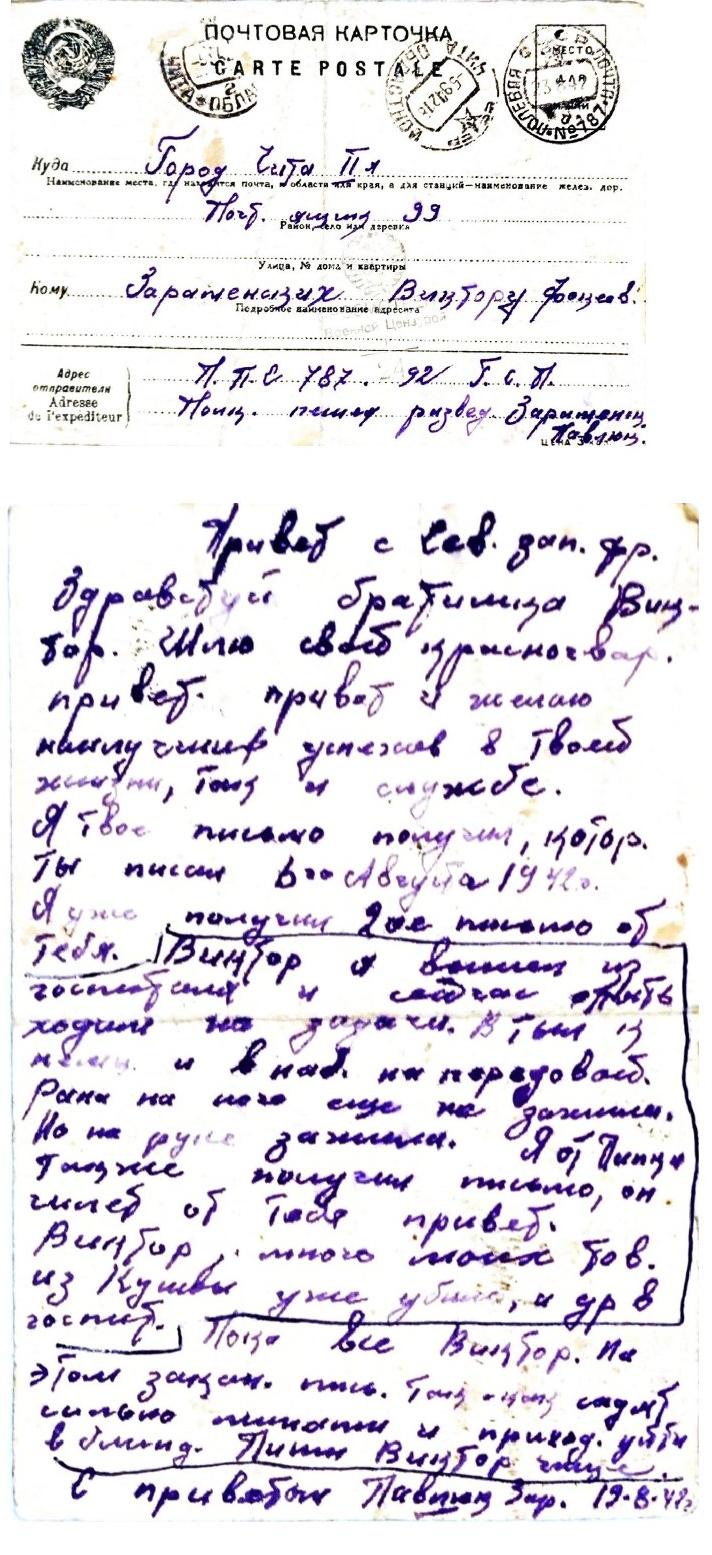 ПОЧТОВАЯ КАРТОЧКА
CARTE POSTALE
ЧИТА ОБЛА
МЕСТО
ПОЛЕВАЯ ПОЧТА №787
Куда Город Чита
Наименование места, где находится почта, и области или края, а для станций—наименование желез. дор.
Почт. ящик 99
Район, село или деревня
Улица, № дома и квартиры
Кому Виктору
Подробное наименование адресата
Военной Цензурой
Адрес отправителя
П.П.С 787. 92 Г.С.П.
Adresse de l'expéditeur
развед.
ЦЕНА
Привет с Сев. зап. фр.
Здравствуй братишка Вик-
тор. Шлю свой красногвар.
привет. привет и желаю
наилучших успехов в твоей
жизни, так и службе.
Я твое письмо получил, котор.
ты писал 6го Августа 1942г.
Я уже получил 2ое письмо от
тебя. Виктор я вышел из
госпиталя и сейчас опять
ходим на задачи. В тыл к
немц. и в наб. на передовой.
Рана на ноге еще не зажила.
Но на руке зажила. Я от
также получил письмо, он
шлет от тебя привет.
Виктор, много моих тов.
из Кушвы уже убиты, и др в
госпит. Пока все Виктор. На
этом закан. пись. Так как садят
сильно минами и приход. уйти
в блинд. Пиши Виктор чаще.
С приветом Павлик Зар. 19.8.42г